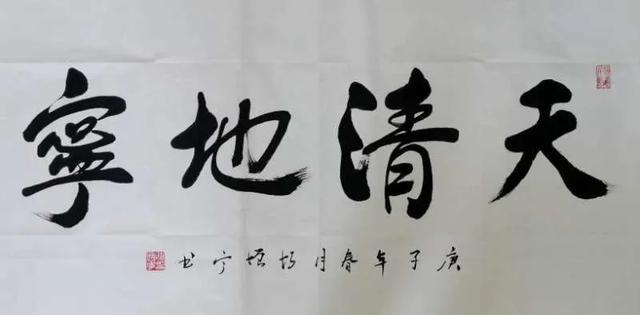 天清地寧
庚子年春月 寧书